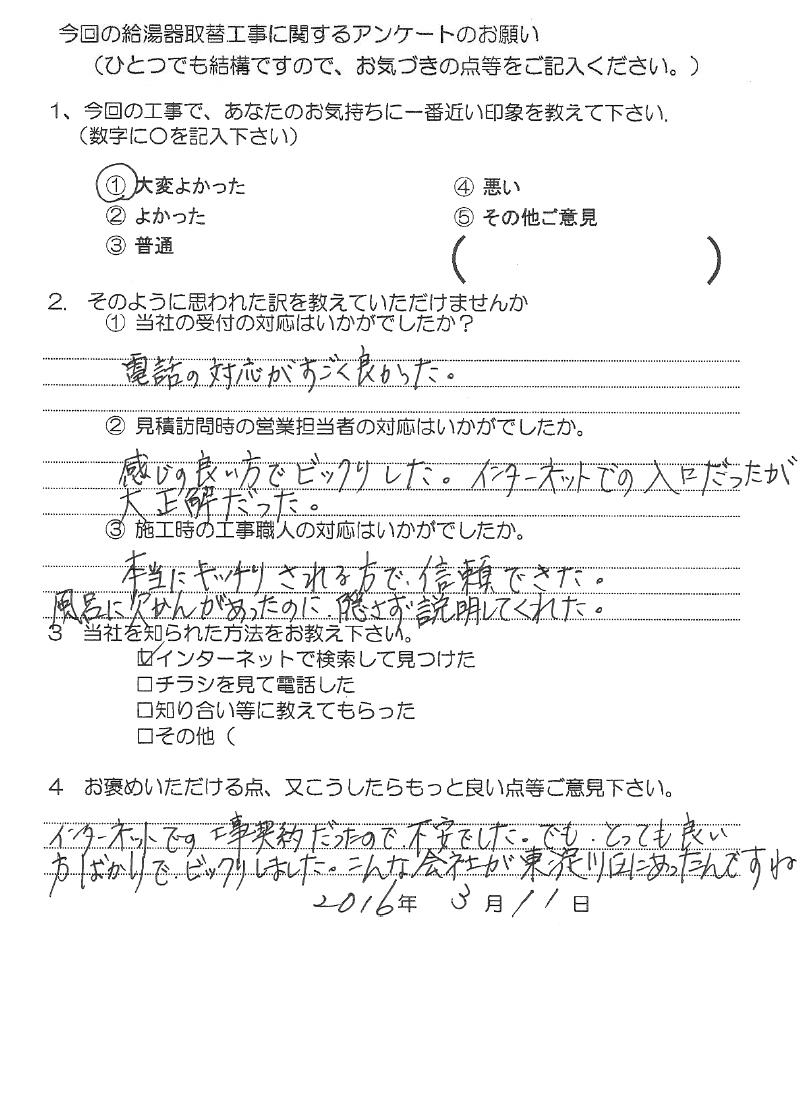 今回の給湯器取替工事に関するアンケートのお願い
（ひとつでも結構ですので、お気づきの点等をご記入ください。）
1、今回の工事で、あなたのお気持ちに一番近い印象を教えて下さい.
（数字に〇を記入下さい）
① 大変よかった ④ 悪い
② よかった ⑤ その他ご意見
③ 普通 （ ）
2. そのように思われた訳を教えていただけませんか
① 当社の受付の対応はいかがでしたか？
電話の対応がすごく良かった。
② 見積訪問時の営業担当者の対応はいかがでしたか。
感じの良い方でビックリした。インターネットでの入口だったが
大正解だった。
③ 施工時の工事職人の対応はいかがでしたか。
本当にキッチリされる方で、信頼できた。
風呂に欠かんがあったのに、隠さず説明してくれた。
3 当社を知られた方法をお教え下さい。
☑インターネットで検索して見つけた
□チラシを見て電話した
□知り合い等に教えてもらった
□その他（
4 お褒めいただける点、又こうしたらもっと良い点等ご意見下さい。
インターネットでの工事契約だったので、不安でした。でも、とっても良い
方ばかりで、ビックリしました。こんな会社が東淀川区にあったんですね
2016年 3月11日